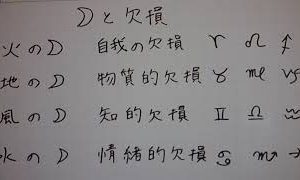 ☽と欠損
火の☽ 自我の欠損 ♈ ♌ ♐
地の☽ 物質的欠損 ♉ ♍ ♑
風の☽ 知的欠損 ♊ ♎ ♒
水の☽ 情緒的欠損 ♋ ♏